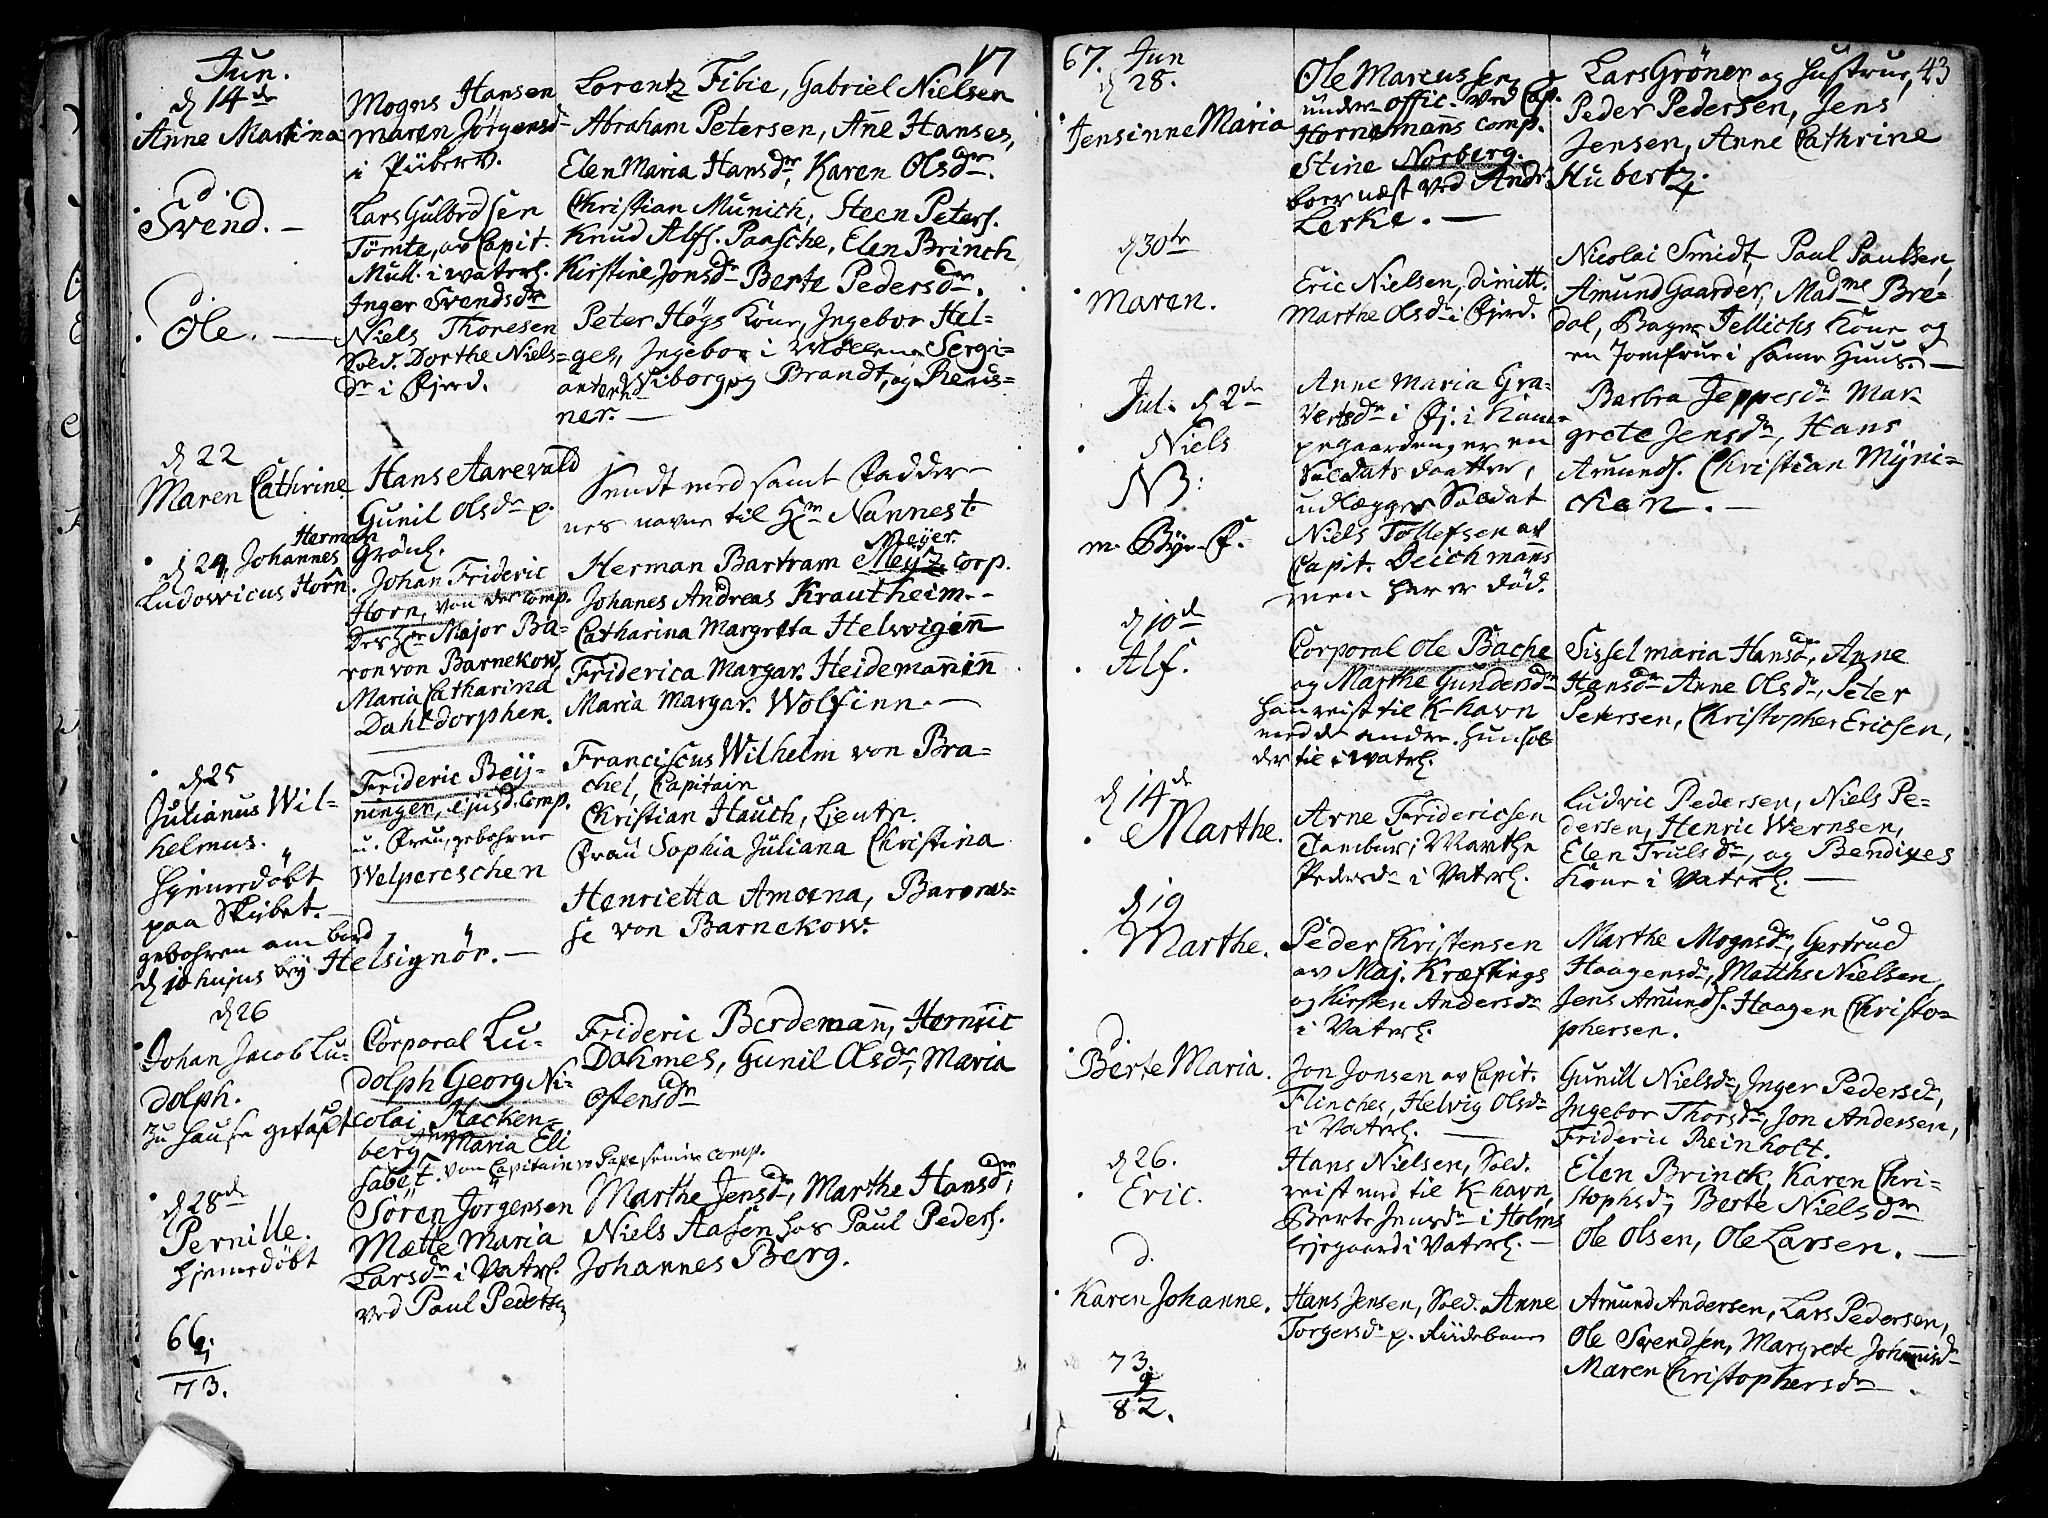 17
Jun.
d 14de
Anne Martina
Mogns Hansen
Maren Jörgensd
i Piiberv.
Lorentz Fibie, Gabriel Nielsen
Abraham Petersen, Añe Hanses,
Elen Maria Hansdr, Karen Olsdr.
d.
Svend. –
Lars Gulbrdsen
Tömte, av Capit.
Mull. i vaterl.
Inger Svendsdr
Christian Munich, Steen Peters.
Knud Alfs. Paasche, Elen Brinch
Kirstine Jonsdr Berte Pedersdr.
d.
Ole. —
Niels Thoresen
Sold. Dorthe Niels=
dr i Fjerd.
Peter Höys Kone, Ingebor Hel-
ges, Ingebor i Möllene Sergi=
anterne Wiborg, og Brandt, og Reus=
ner. —
d 22
Maren Cathrine
Hans Aarevald
Gunil Olsdr p.
Grönl.
Sendt med samt Fadder-
nes navne til Hr Nannest.
d 24, Johannes Herman
Ludovicus Horn.
Johan Frideric
Horn, von der comp.
des Hr Major Ba-
ron von Barnekow,
Maria Catharina
Dahldorphen.
Meyer.
Herman Bartram Meÿz, corp.
Johanes Andreas Krautheim. -
Catharina Margreta Helwigiñ
Friderica Margar. Heidemañiñ
Maria Margar. Wolfinn. —
d 25
Julianus Wil-
helmus.
hjemedöbt
paa Skibet.
gebohren am bord
d 10 hujus bey Helsignör. —
Frideric Beÿ-
ningen, ejusd. comp.
u. Frau, gebohrne
Welpereschen
Franciscus Wilhelm von Bra-
chel, Capitain
Christian Hauch, Lientn.
Frau Sophia Juliana Christina
Henrietta Amoena, Barones=
se von Barnekow.
d 26
Johan Jacob Lu-
dolph.
zu Hause getauft
Corporal Lu-
dolph Georg Ni-
colai Hacken-
berg, Anna Maria Eli
sabet. vom Capitain v Pape seiner comp.
Frideric Berdemañ, Henric
Dahmes, Gunil Olsdr, Maria
Ostensdr
d 28de
Pernille.
hjemedöbt
Sören Jörgensen
Mætte Maria
Larsdr i Vaterl.
ved Paul Peders
Marthe Jensdr, Marthe Hansdr,
Niels Aasen hos Paul Peders.
Johannes Berg.
66.
7
73.
67. Jun
d 28.
43
Jensinne Maria
Ole Marcussen,
under offic. ved Cap.
Hornemañs comp.
Stine Norberg.
boer næst ved Andr.
Lerke. —
Lars Gröner og hustrue,
Peder Pedersen, Jens
Jensen, Anne Cathrine
Hubertz.
d 30te
Maren.
Eric Nielsen, dimitt.
Marthe Olsdr i Fjerd.
Nicolai Smidt, Paul Paulsen,
Amund Gaarder, Madme Bre-
dal, Bager Jellichs Kone og
en Jomfrue i same Huus. —
Jul. d 2de
Niels
NB:
Anne Maria Gra-
vertsdr i Fj. i Kam-
pegaarden, er en
Soldats daatter,
udlægger Soldat
Niels Tollefsen av
Capit. Deichmañs
men han er död.
Barbra Jeppesdr Mar
grete Jensdr, Hans
Amunds. Christian Myni-
chen. —
d 10de
Alf.
Corporal Ole Bache
og Marthe Gundersdr
han reist til K-havn
med de andre. Hun hol
der til i Vaterl.
Sissel maria Hansdr, Anne
Hansdr Anne Olsdr, Peter
Petersen, Christopher Ericsen,
d 14de
Marthe.
Arne Fridericsen
Tambur, Marthe
Pedersdr i Vaterl.
Ludvic Pedersen, Niels Pe-
dersen, Henric Wernsen,
Elen Trulsdr, og Bendixes
Kone i Vaterl. —
d 19
Marthe.
Peder Christensen
av Maj. Kræftings
og Kirsten Andersdr
i Vaterl.
Marthe Mognsdr, Gertrud
Haagensdr, Matths Nielsen,
Jens Amunds. Haagen Christo-
phersen.
d
Berte Maria.
Jon Jonsen av Capit.
Flinches, Helvig Olsdr
i Vaterl. —
Gunill Nielsdr, Inger Pedersdr,
Ingebor Thorsdr, Jon Andersen,
Frideric Reinholt.
d 26.
Eric.
Hans Nielsen, Sold.
reist med til K-havn,
Berte Jensdr i Holms
lejegaard i Vaterl. —
Elen Brinck, Karen Chri-
stophsdr, Berte Nielsdr
Ole Olsen, Ole Larsen. —
d.
Karen Johanne.
Hans Jensen, Sold. Anne
Torgersdr p. Riidebanen
Amund Andersen, Lars Pedersen,
Ole Svendsen, Margrete Johannisdr
Maren Christophersdr.
73
9
82.